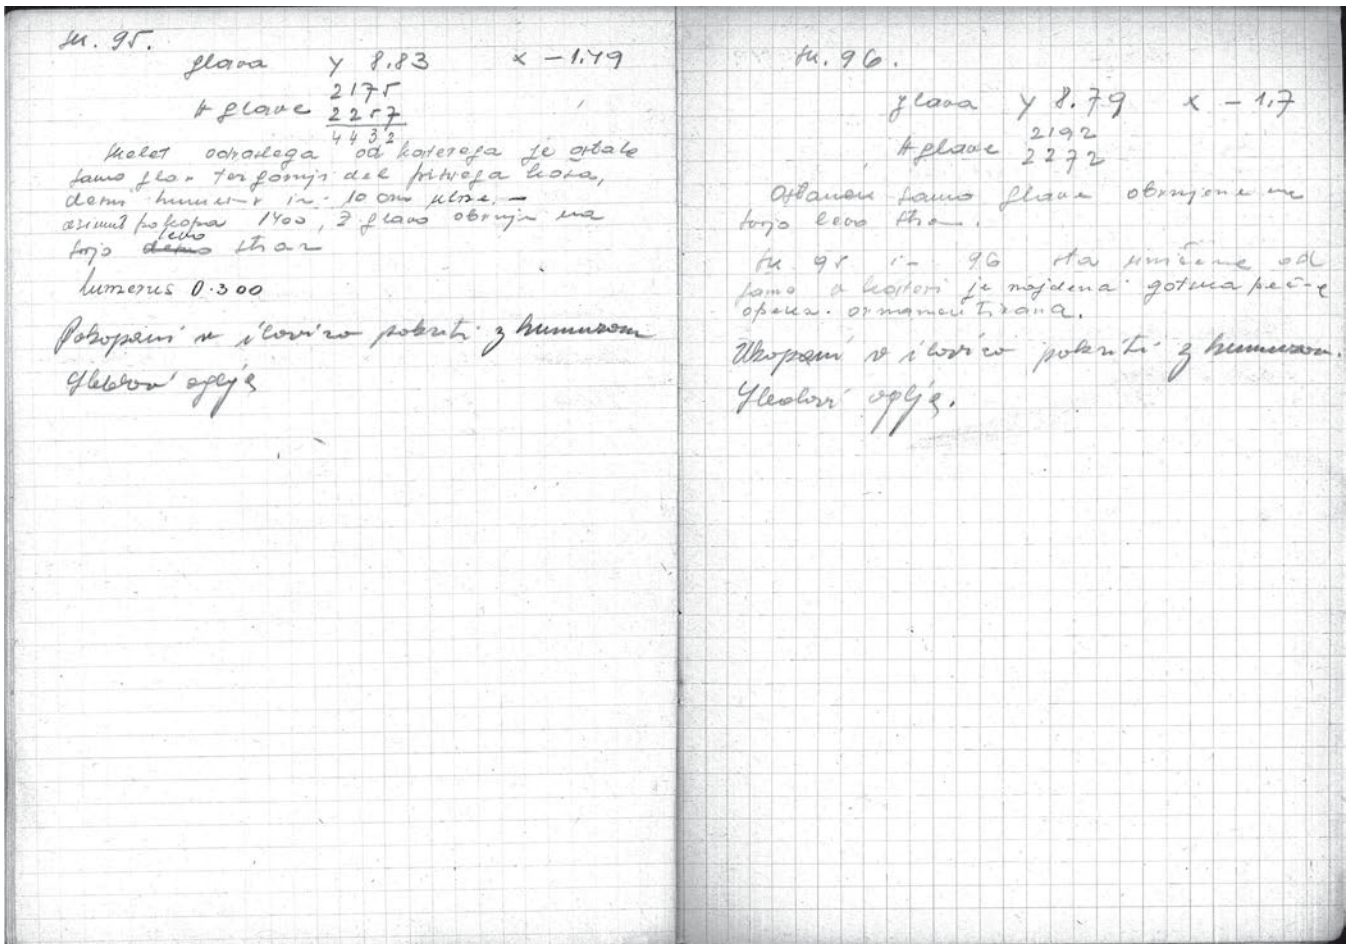 sk. 95.
glava y 8.83 x -1.49
2175
H glave 2257
4432
Skelet odraslega od katerega je ostala
samo glava ter gornji del prsnega koša,
desni humerus in 10 cm ulne. -
azimut pokopa 1400, z glavo obrnjen na
svojo levo stran
humerus 0.300
Pokopani v ilovico pokriti z humusom
Sledovi oglja
sk. 96.
glava y 8.79 x -1.7
2192
H glave 2272
Ostanek samo glave obrnjene na
svojo levo stran.
Sk 95 in 96 sta uničena od
jame v kateri je najdena gotska
opeka. ornamentirana.
Vkopani v ilovico pokriti z humusom.
Sledovi oglja.